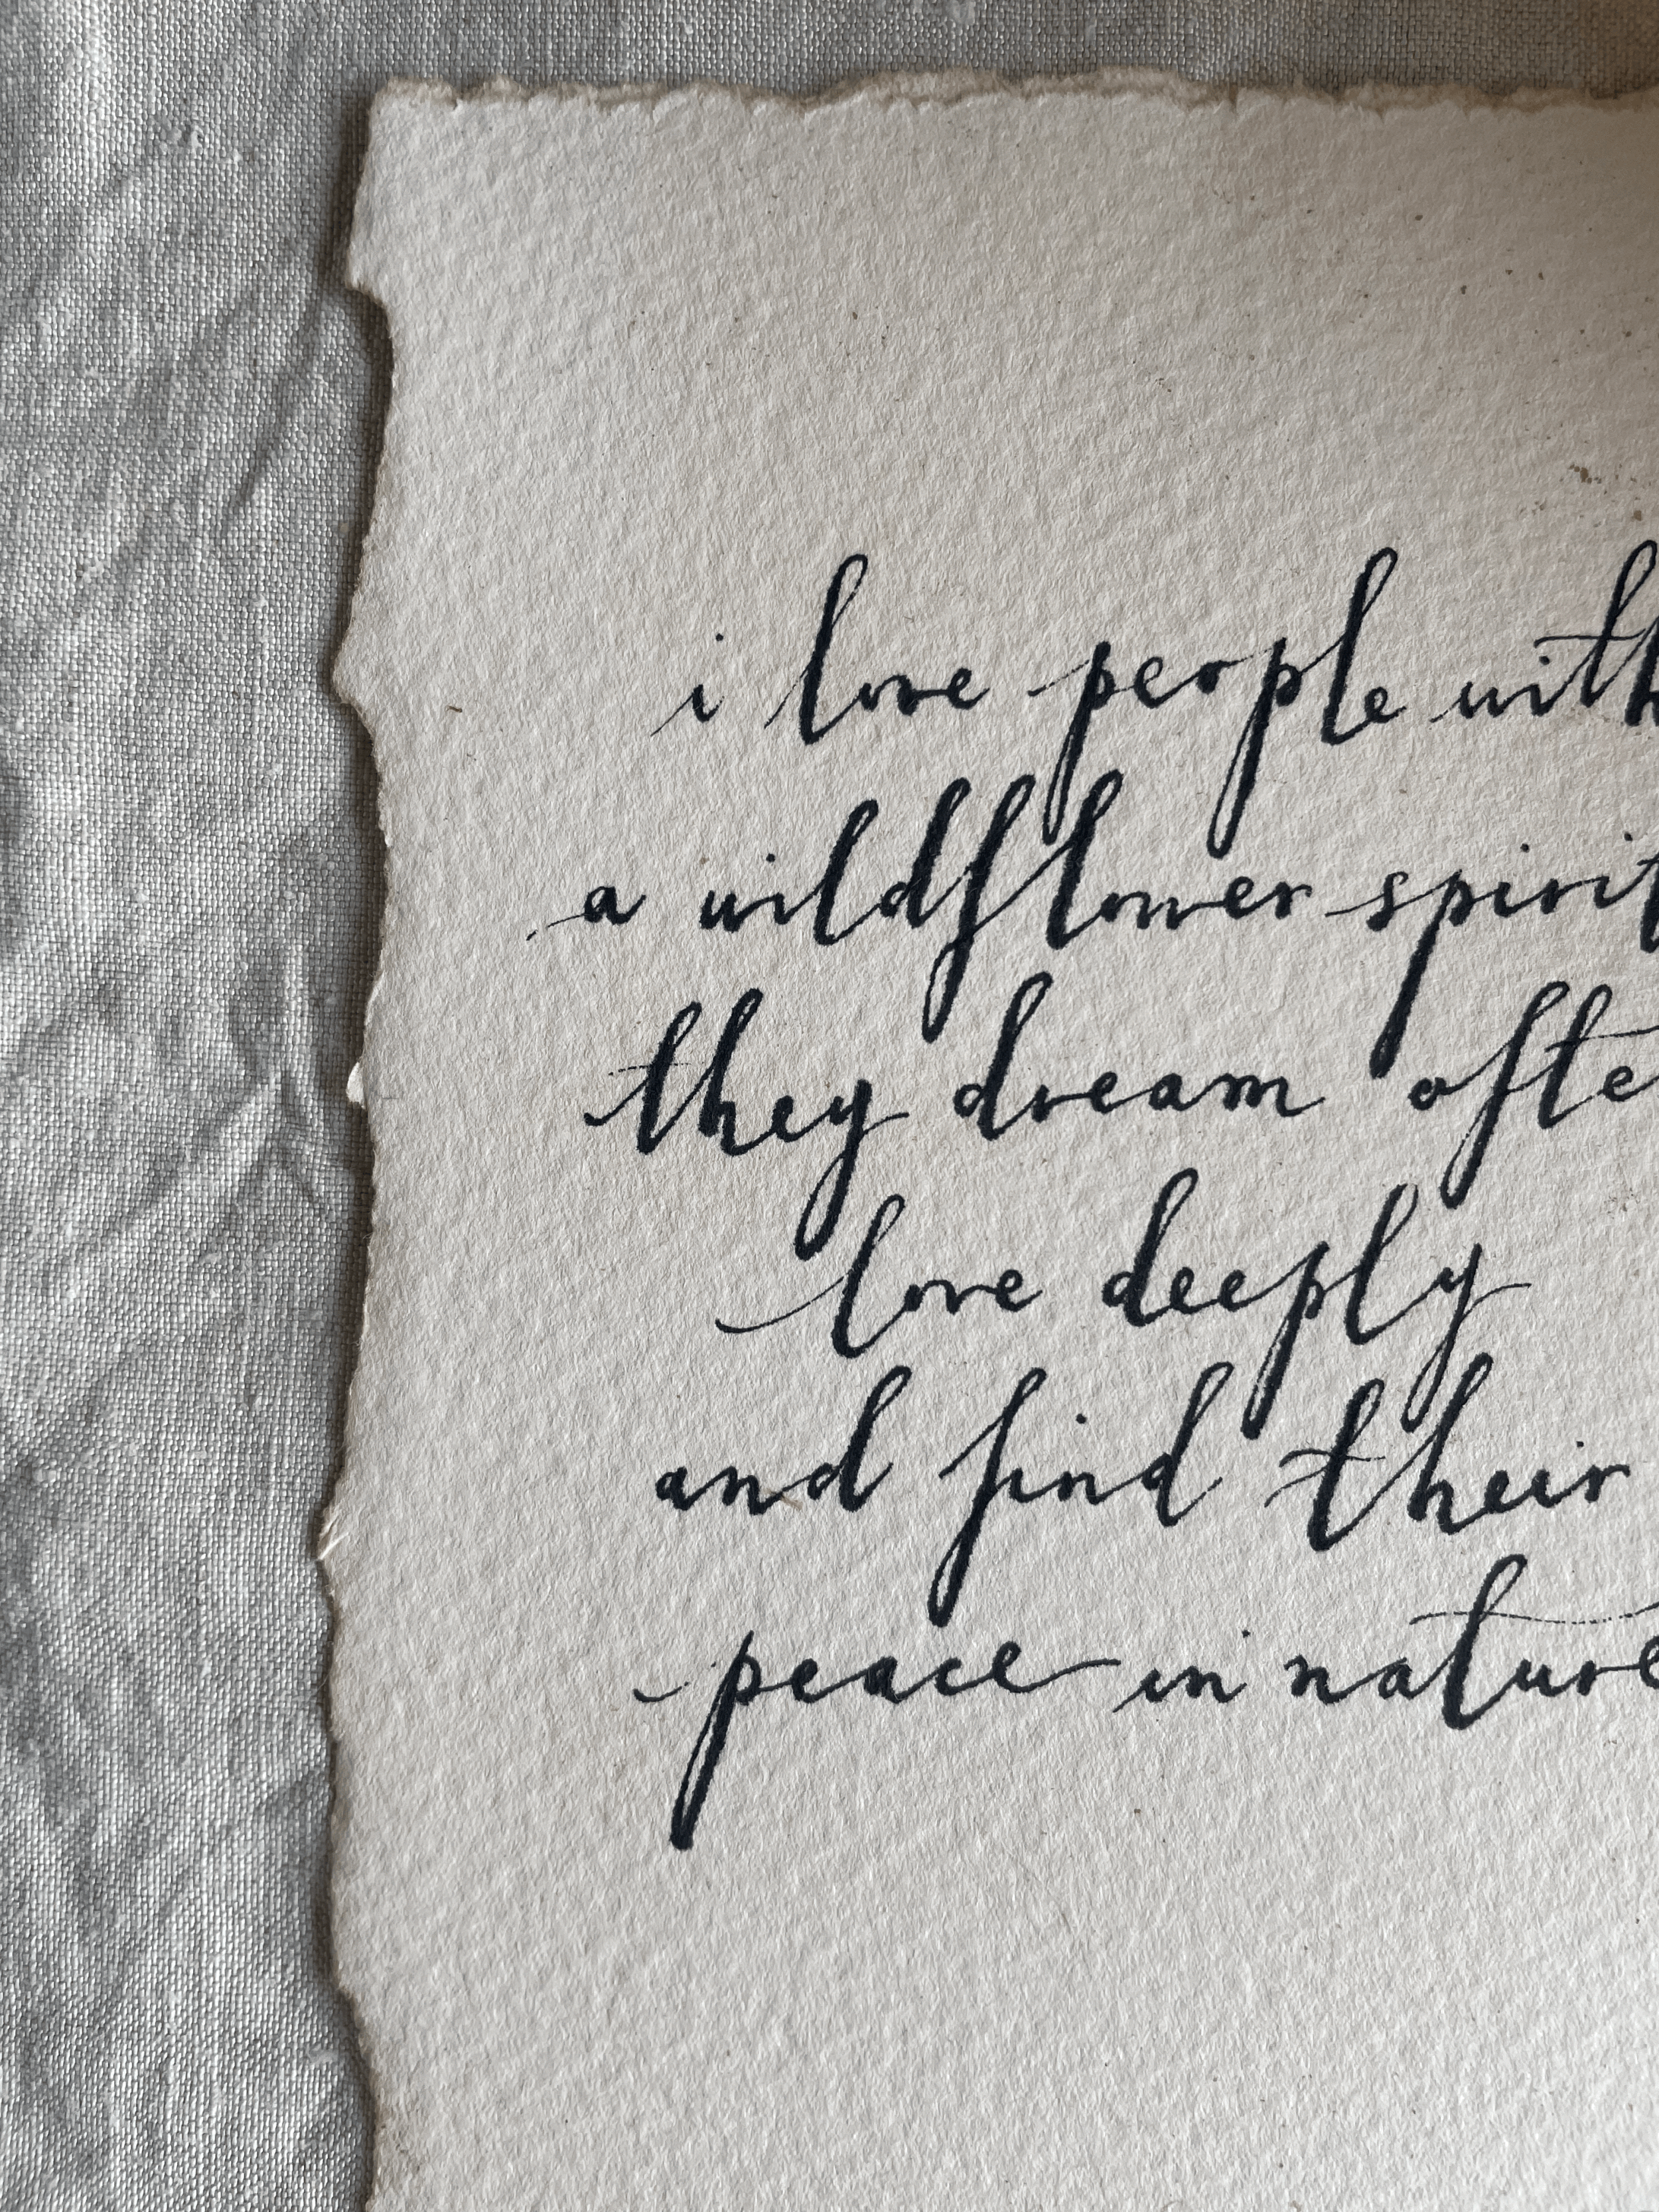 i love people with
a wildflower spirit
they dream ofte
love deeply
and find their
peace in nature